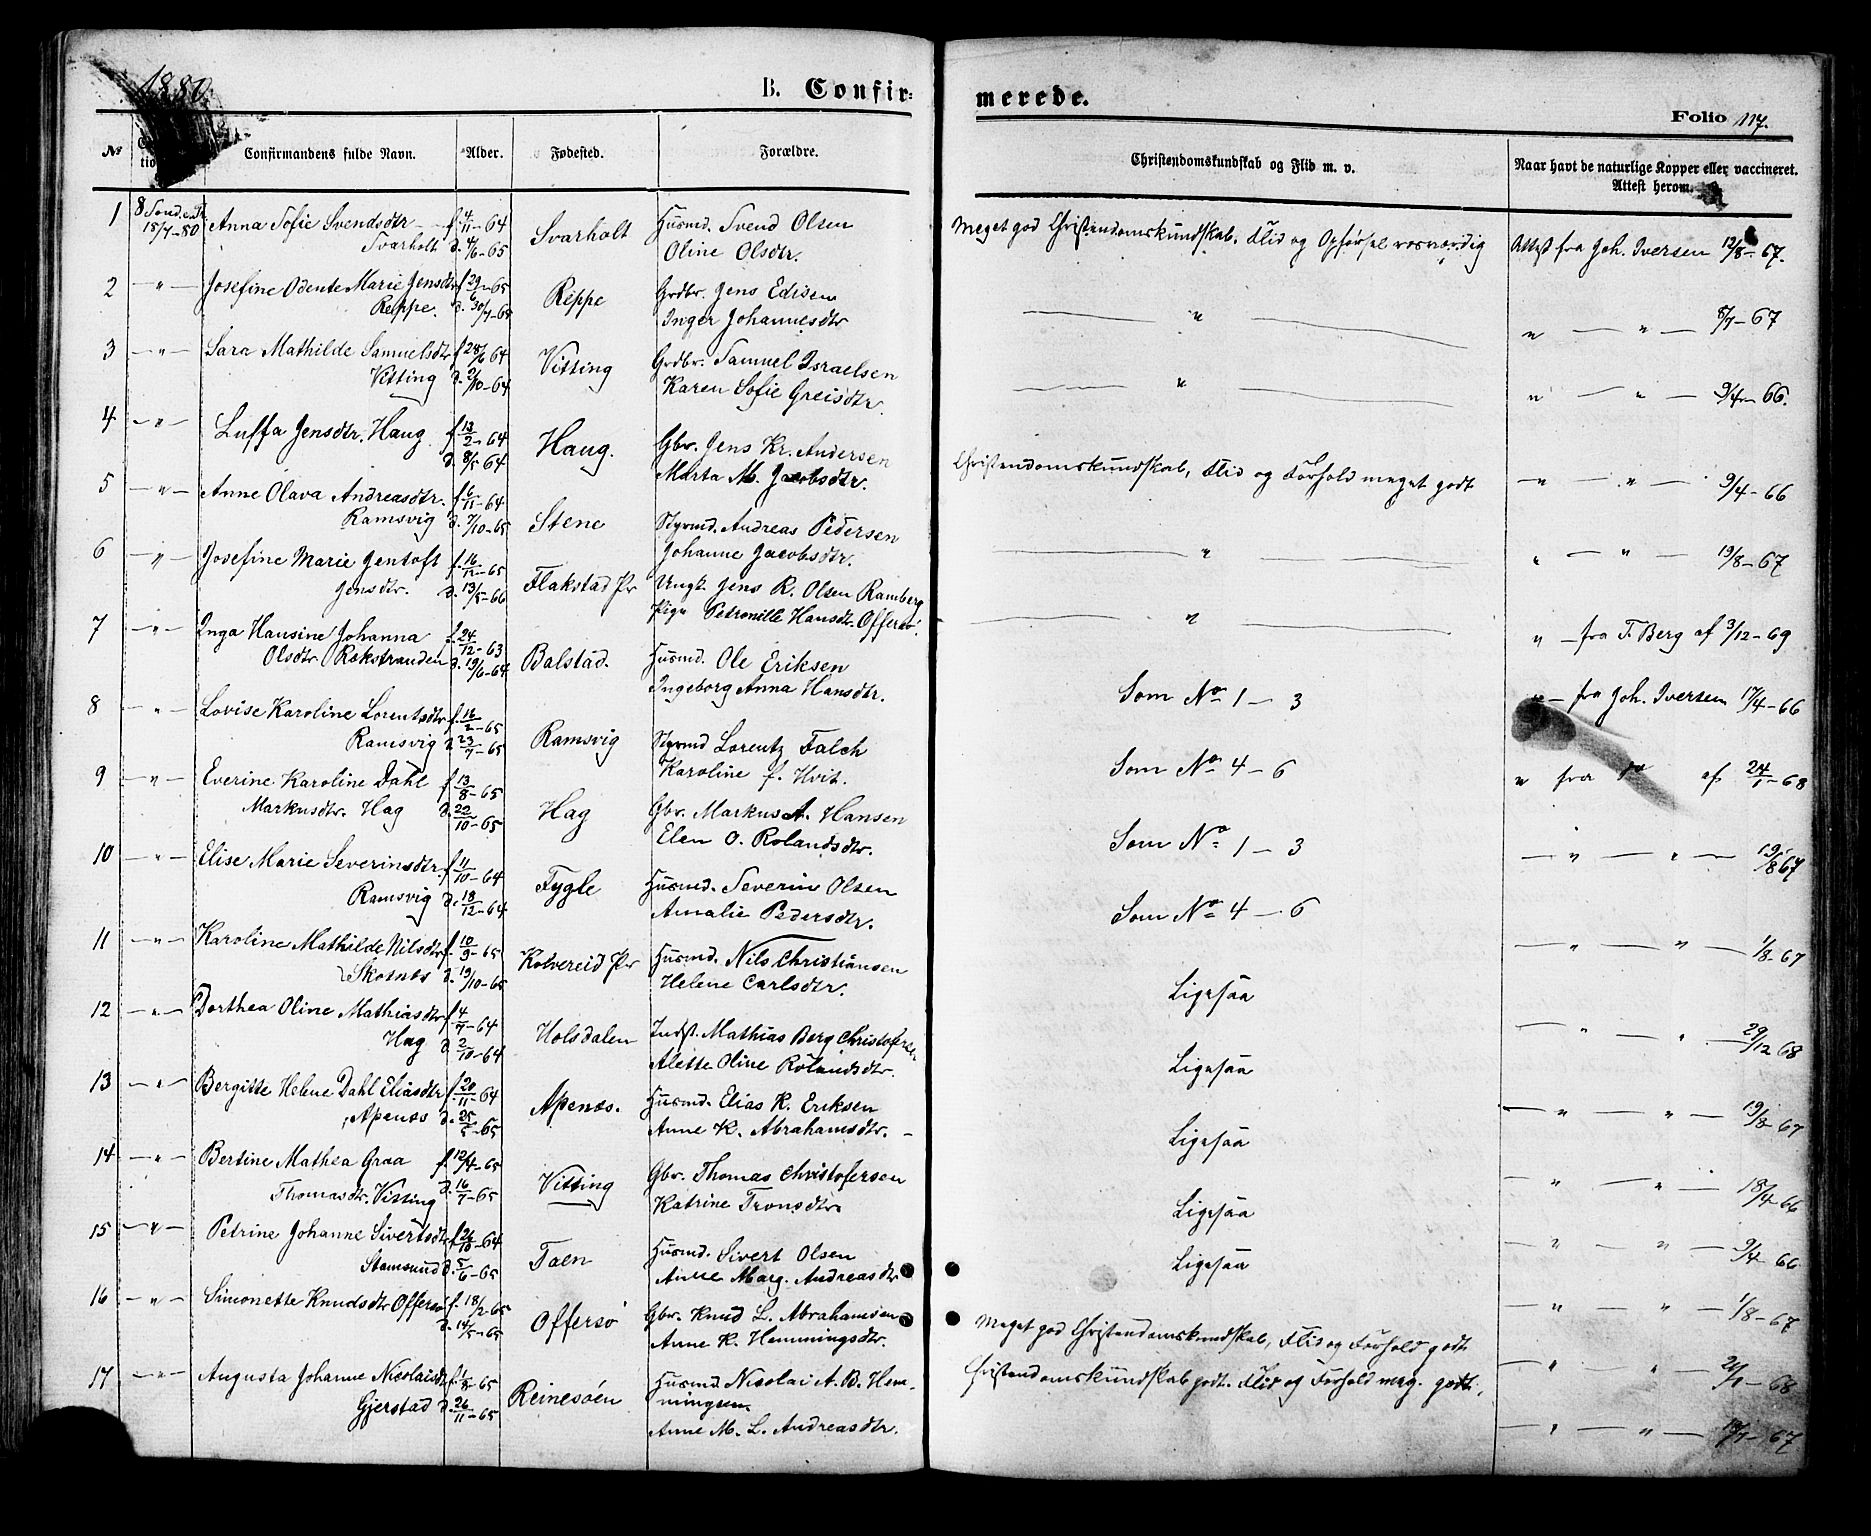 1880.
B. Confirmerede.
Folio 117.
№ Confirmandens fulde Navn. Alder. Fødested. Forældre. Christendomskundskab og Flid m. v. Naar havt de naturlige Kopper eller vaccineret. Attest herom.
1 8 Sond. e. Tr. 18/7-80 Anna Sofie Svendsdtr f. 4/11-64 Svarholt Husmd. Svend Olsen Meget god Christendomskundskab. Flid og Opførsel rosværdig Attest fra Joh. Iversen 12/8-67.
Svarholt d. 4/6-65 Oline Olsdtr.
2 -"- Josefine Odente Marie Jensdtr f. 29/6-65 Reppe Grdbr. Jens Edisen " " " 8/7-67
Reppe. d. 30/7-65 Inger Johannesdtr
3 -"- Sara Mathilde Samuelsdtr f. 24/6 64 Vitting Grdbr. Samuel Israelsen " " " 9/4-66.
Vitting d. 2/10-64 Karen Sofie Greisdtr.
4 -"- Luffa Jensdtr. Haug f. 13/2-64 Haug. Gbr. Jens Kr. Andersen Christendomskundskab, Flid og Forhold meget godt " " 9/4-66
d. 8/5 64 Marta M. Jacobsdtr.
5 -"- Anne Olava Andreasdtr. f. 6/11-64 Stene Styrmd. Andreas Pedersen " " " 19/8-67
Ramsvig d. 7/10-65 Johanne Jacobsdtr.
6 -"- Josefine Marie Jentoft f. 16/12-65 Flakstad Pr Ungk. Jens R. Olsen Ramberg " " fra F. Berg af 3/12-69
Jensdtr. d. 13/5-66 Pige Petronille Hansdtr. Offersö.
7 -"- Inga Hansine Johanna f. 24/12-63 Balstad. Husmd. Ole Eriksen Som No 1-3 " fra Joh. Iversen 17/4-66
Olsdtr. Rækstranden d. 19/6-64 Ingeborg Anna Hansdtr.
8 -"- Lovise Karoline Lorentsdtr f. 16/2-65 Ramsvig Styrmd Lorentz Falch Som No 4-6 " fra af 24/1-68
Ramsvig d. 23/7-65 Karoline f. Hvit.
9 -"- Everine Karoline Dahl f. 13/8-65 Hag Gbr. Markus A. Hansen Som No 1-3 " " 19/8 67
Markusdtr. Hag d. 22/10-65 Elen O. Rolandsdtr.
10 -"- Elise Marie Severinsdtr. f. 11/10-64 Fygle Husmd. Severin Olsen Som No 4-6 " " 1/8-67
Ramsvig d. 18/12-64 Amalie Pedersdtr.
11 -"- Karoline Mathilde Nilsdtr f. 10/9-65 Kolvereid Pr Husmd. Nils Christiansen Ligesaa " " 29/12 68
Skotnes d. 19/10-65 Helene Carlsdtr.
12 -"- Dorthea Oline Mathiasdtr f. 4/7-64 Holsdalen Indst. Mathias Berg Christofersen Ligesaa " " 19/8-67
Hag d. 2/10-64 Alette Oline Rolandsdtr.
13 -"- Bergitte Helene Dahl Eliasdtr f. 20/11-64 Apenes. Husmd. Elias K. Eriksen Ligesaa " " 18/4-66
Apenes d. 25/5-65 Anne K. Abrahamsdtr.
14 -"- Bertine Mathea Graa f. 12/4-65 Vitting Gbr. Thomas Christofersen Ligesaa " " 9/4-66
Thomasdtr. Vitting d. 16/7-65 Katrine Tronsdtr
15 -"- Petrine Johanne Sivertsdtr f. 26/10-64 Taen Husmd. Sivert Olsen Ligesaa " " 1/8-67
Stamsund d. 5/6-65 Anne Marg. Andreasdtr
16 -"- Simonette Knudsdtr Offersø f. 18/2-65 Offersø Gbr. Knud L. Abrahamsen Meget god Christendomskundskab, Flid og Forhold godt " " 24/1-68
d. 14/5-65 Anne K. Hemmingsdtr.
17 -"- Augusta Johanne Nicolaisdtr f. 1/8-65 Reinesöen Husmd. Nicolai A. B. Hem- Christendomskundskab godt. Flid og Forhold meg. godt. " " -67
Gjerstad d. 26/11-65 mingsen
Anne M. L. Andreasdtr.